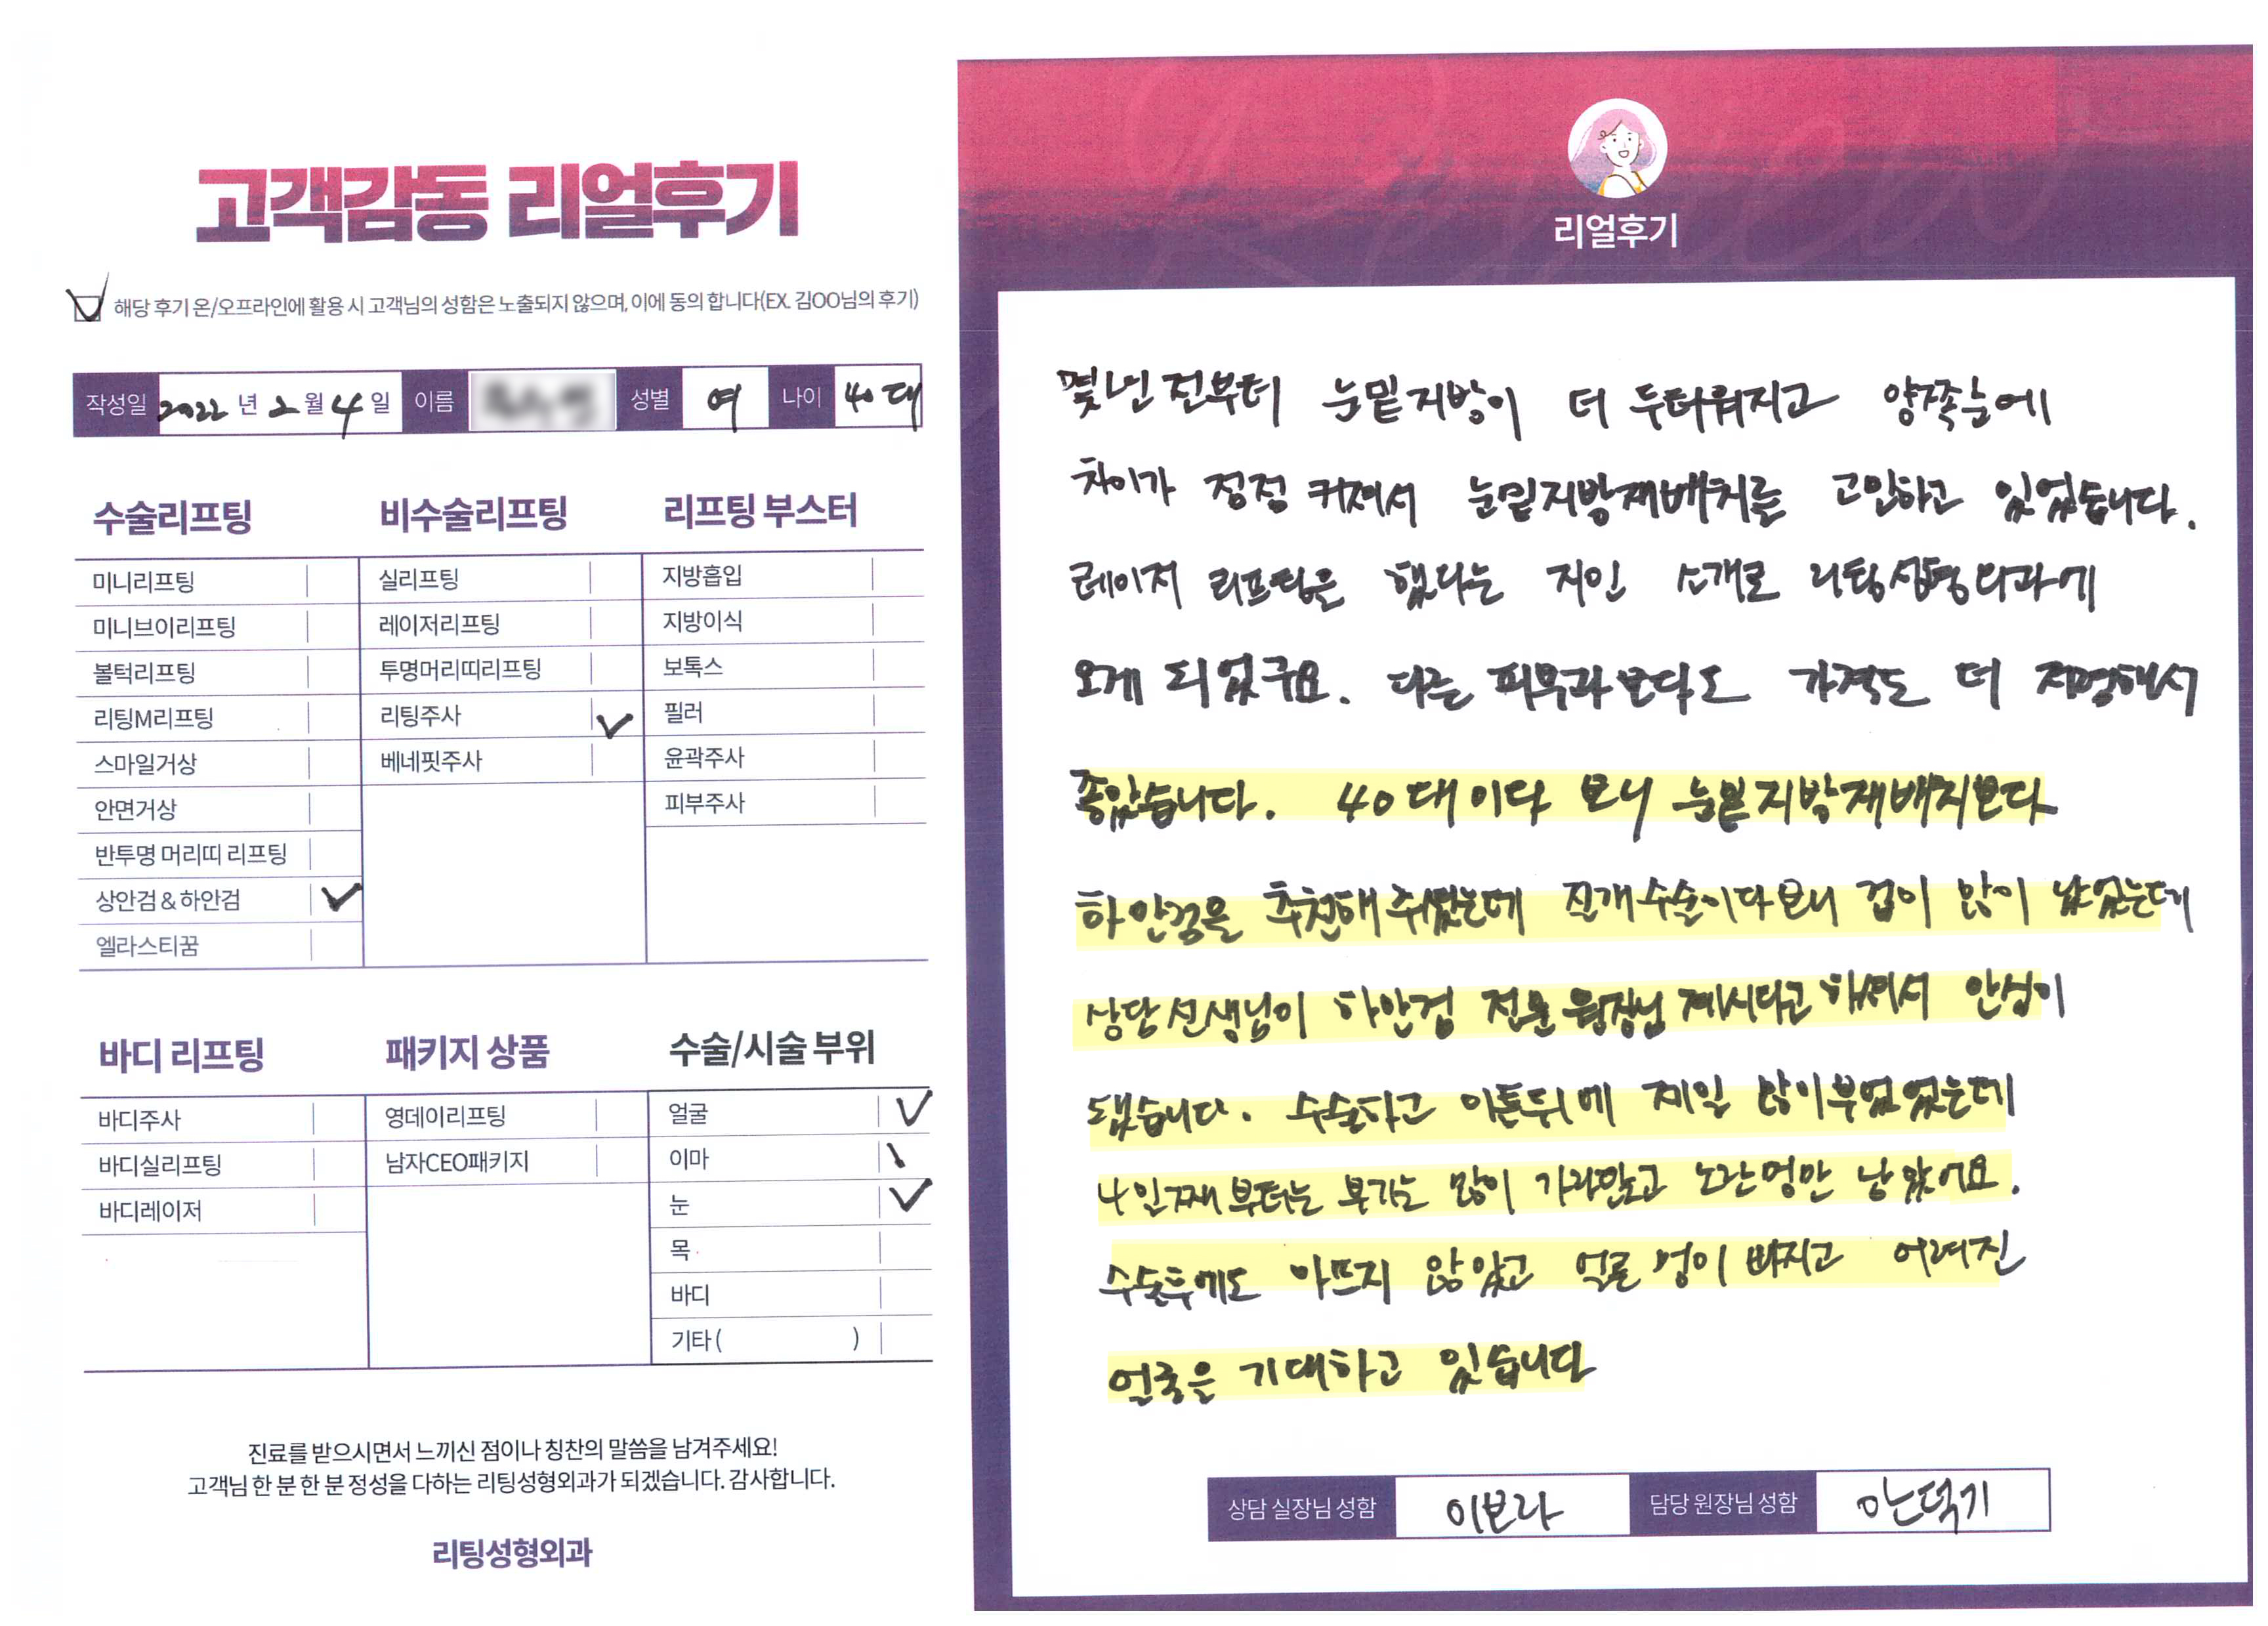 고객감동 리얼후기
해당 후기 온/오프라인에 활용 시 고객님의 성함은 노출되지 않으며, 이에 동의 합니다(EX. 김OO님의 후기)
작성일 2022 년 2 월 4 일 이름 성별 여 나이 40대
수술리프팅
미니리프팅
미니브이리프팅
볼턱리프팅
리팅M리프팅
스마일거상
안면거상
반투명 머리띠 리프팅
상안검 & 하안검
엘라스티꿈
비수술리프팅
실리프팅
레이저리프팅
투명머리띠리프팅
리팅주사
베네핏주사
리프팅 부스터
지방흡입
지방이식
보톡스
필러
윤곽주사
피부주사
바디 리프팅
바디주사
바디실리프팅
바디레이저
패키지 상품
영데이리프팅
남자CEO패키지
수술/시술 부위
얼굴
이마
눈
목
바디
기타 ( )
진료를 받으시면서 느끼신 점이나 칭찬의 말씀을 남겨주세요!
고객님 한 분 한 분 정성을 다하는 리팅성형외과가 되겠습니다. 감사합니다.
리팅성형외과
리얼후기
몇년 전부터 눈밑지방이 더 두터워지고 양쪽눈에
차이가 정점 커져서 눈밑지방재배치를 고민하고 있었습니다.
레이저 리프팅은 했다는 지인 소개로 리팅성형외과에
오게 되었구요. 다른 피부과보다도 가격도 더 저렴해서
좋았습니다. 40대이다 보니 눈밑지방재배치보다
하안검을 추천해주셨는데 전개수술이다보니 겁이 많이 났었는데
상담선생님이 하안검 전문 원장님 계시다고 하셔서 안심이
됐습니다. 수술하고 이튿뒤에 제일 많이 부었었는데
4일째부터는 붓기는 많이 가라앉고 노란멍만 남았어요.
수술후에도 아프지 않았고 얼른 멍이 빠지고 어려진
얼굴을 기대하고 있습니다
상담 실장님 성함 이보라 담당 원장님 성함 안덕기